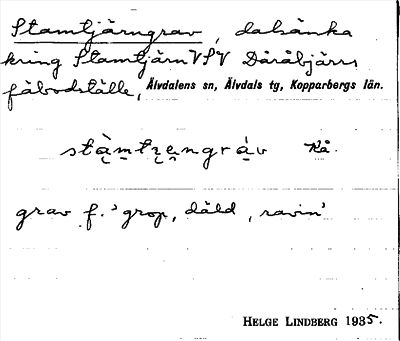 Stamtjärngrav, dalsänka
kring Stamtjärn VSV Däråbjärs
fäbodställe, Älvdalens sn, Älvdals tg, Kopparbergs län.
stàmtʒęngràv Kå.
grav f. 'grop, däld, ravin'
HELGE LINDBERG 1935.